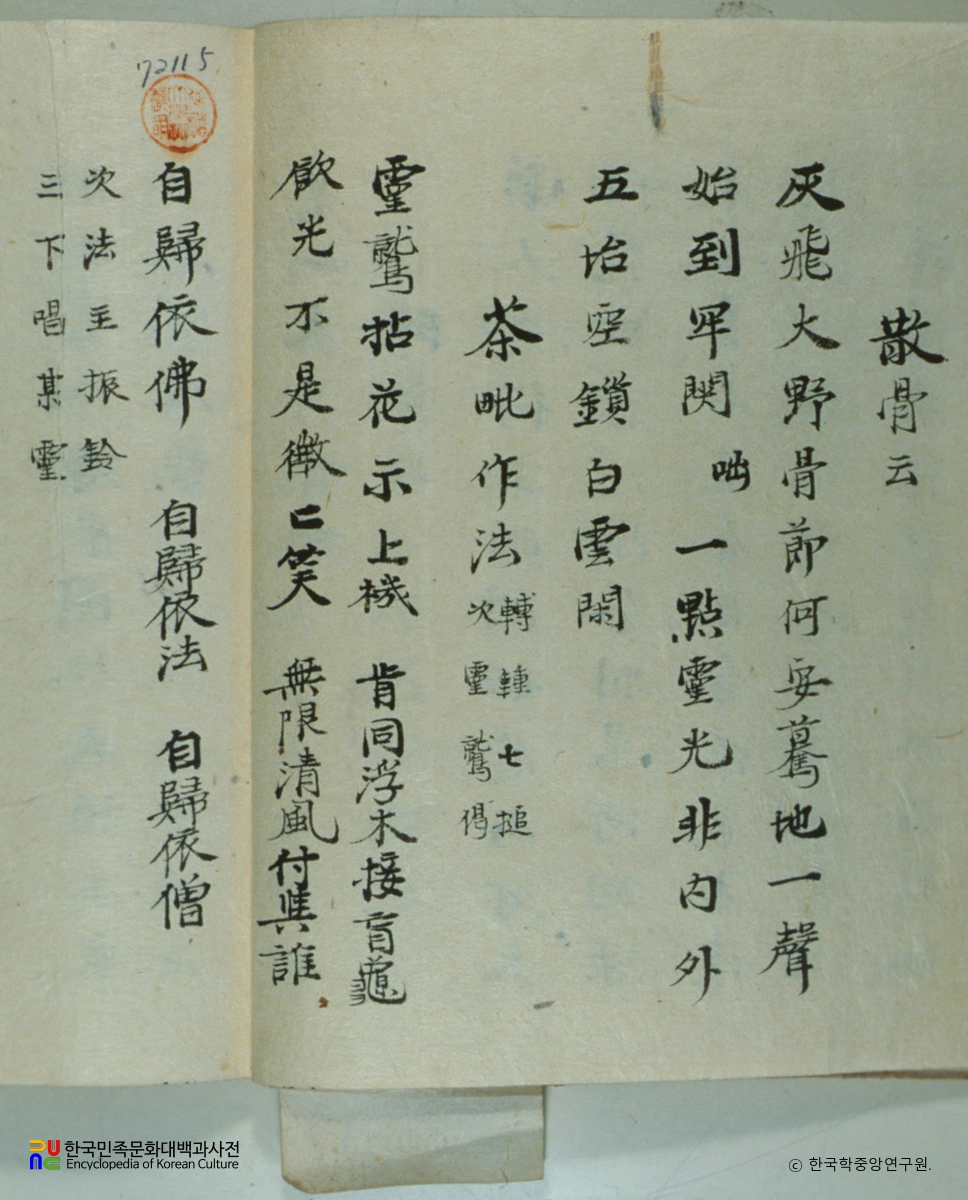 散骨云
灰飛大野骨節何安驀地一聲
始到牢関 咄 一點靈光非内外
五坮空鎖白雲閑
茶毗作法 轉鍾七搥
次靈鷲偈
靈鷲拈花示上機 肯同浮木接盲龜
飮光不是微〻笑 無限清風付與誰
自歸依佛 自歸依法 自歸依僧
次法主振鈴
三下唱某靈
72115
한국민족문화대백과사전
Encyclopedia of Korean Culture
ⓒ 한국학중앙연구원.